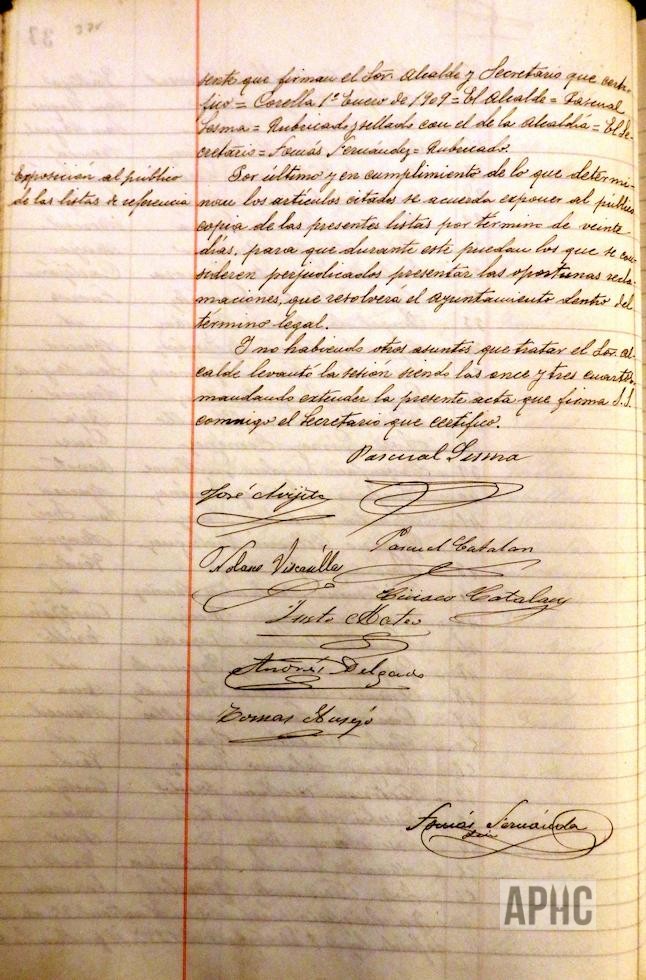 sente que firman el Sor. Alcalde y Secretario que certi-
fico = Corella 1º Enero de 1909 = El Alcalde = Pascual
Sesma = Rubricado y sellado con el de la Alcaldía = El Se-
cretario = Tomás Fernández = Rubricado.
Exposición al público
de las listas de referencia
Por último y en cumplimiento de lo que determi-
nan los artículos citados se acuerda exponer al público
copia de las presentes listas por termino de veinte
días, para que durante este puedan los que se con-
sideren perjudicados presentar las oportunas recla-
maciones, que resolverá el Ayuntamiento dentro del
término legal.
Y no habiendo otros asuntos que tratar el Sor. Al-
calde levantó la sesión siendo las once y tres cuartos
mandando extender la presente acta que firma S.S.
conmigo el Secretario que certifico.
Pascual Sesma
José
Pascual Catalan
Ciriaco Catalan
Justo Mateo
Andrés Delgado
Tomas
Tomás Fernández
APHC